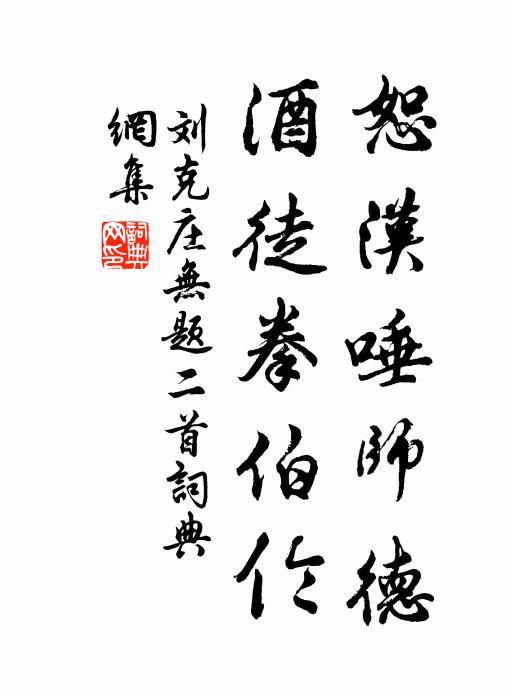 恕漢唾師德
酒徒拳伯伶
刘克庄無題二首詞典
網集
詞典
网印